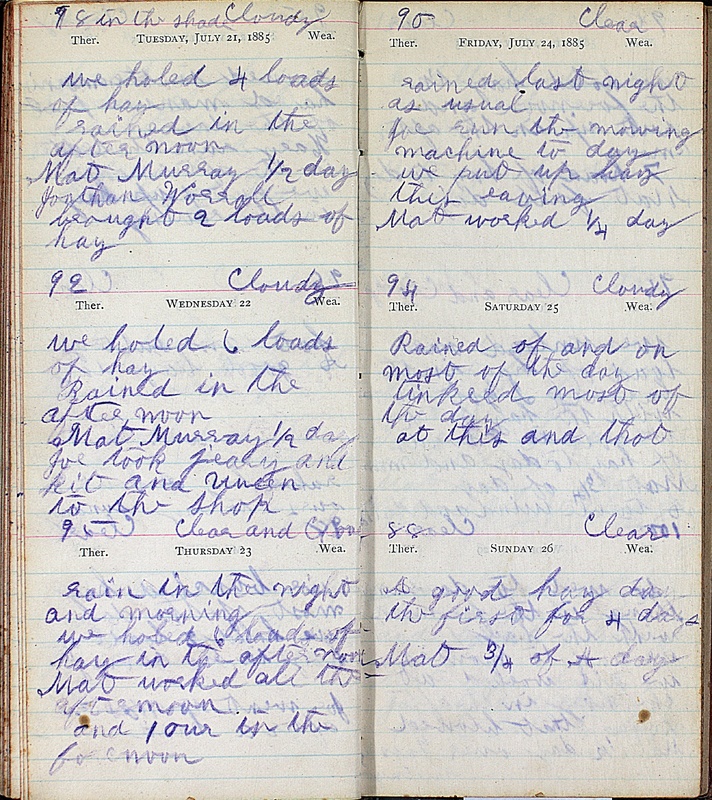 98 in the shad Cloudy
Ther. TUESDAY, JULY 21, 1885 Wea.
we holed 4 loads
of hay
rained in the
after noon
Mat Murray 1/2 day
Jonthan Worrall
brought 2 loads of
hay
92 Cloudy
Ther. WEDNESDAY 22 Wea.
we holed 6 loads
of hay
Rained in the
after noon
Mat Murray 1/2 day
Joe took and
kit and
to the shop
95 Clear and
Ther. THURSDAY 23 Wea.
rain in the night
and morning
we holed 6 loads of
hay in the after noon
Mat worked all the
after noon
and 1 our in the
fornoon
90 Clear
Ther. FRIDAY, JULY 24, 1885 Wea.
rained last night
as usual
Joe run the mowing
machine to day
we put up hay
this eaving
Mat worked 1/4 day
94 Cloudy
Ther. SATURDAY 25 Wea.
Rained of and on
most of the day
tinkeed most of
the day
at this and that
88 Clear
Ther. SUNDAY 26 Wea.
A good hay da
the first for 4 days
Mat 3/4 of A day